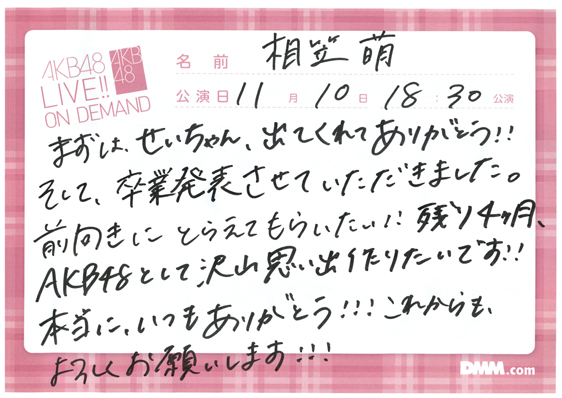 AKB48
LIVE!!
ON DEMAND
AKB
48
名前 相笠萌
公演日 11月10日 18:30公演
まずは、せいちゃん、出てくれてありがとう!!
そして、卒業発表させていただきました。
前向きにとらえてもらいたい!! 残り4ヶ月、
AKB48として沢山思い出作りたいです!!
本当に、いつもありがとう!!! これからも、
よろしくお願いします!!!
DMM.com